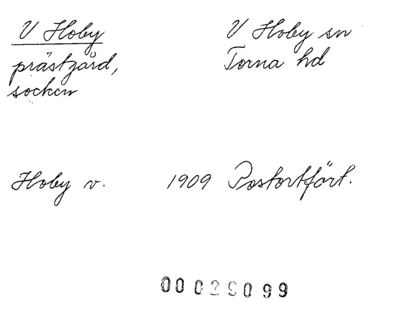 V Hoby
prästgård,
socken
V Hoby sn
Torna hd
Hoby v. 1909 Postortfört.